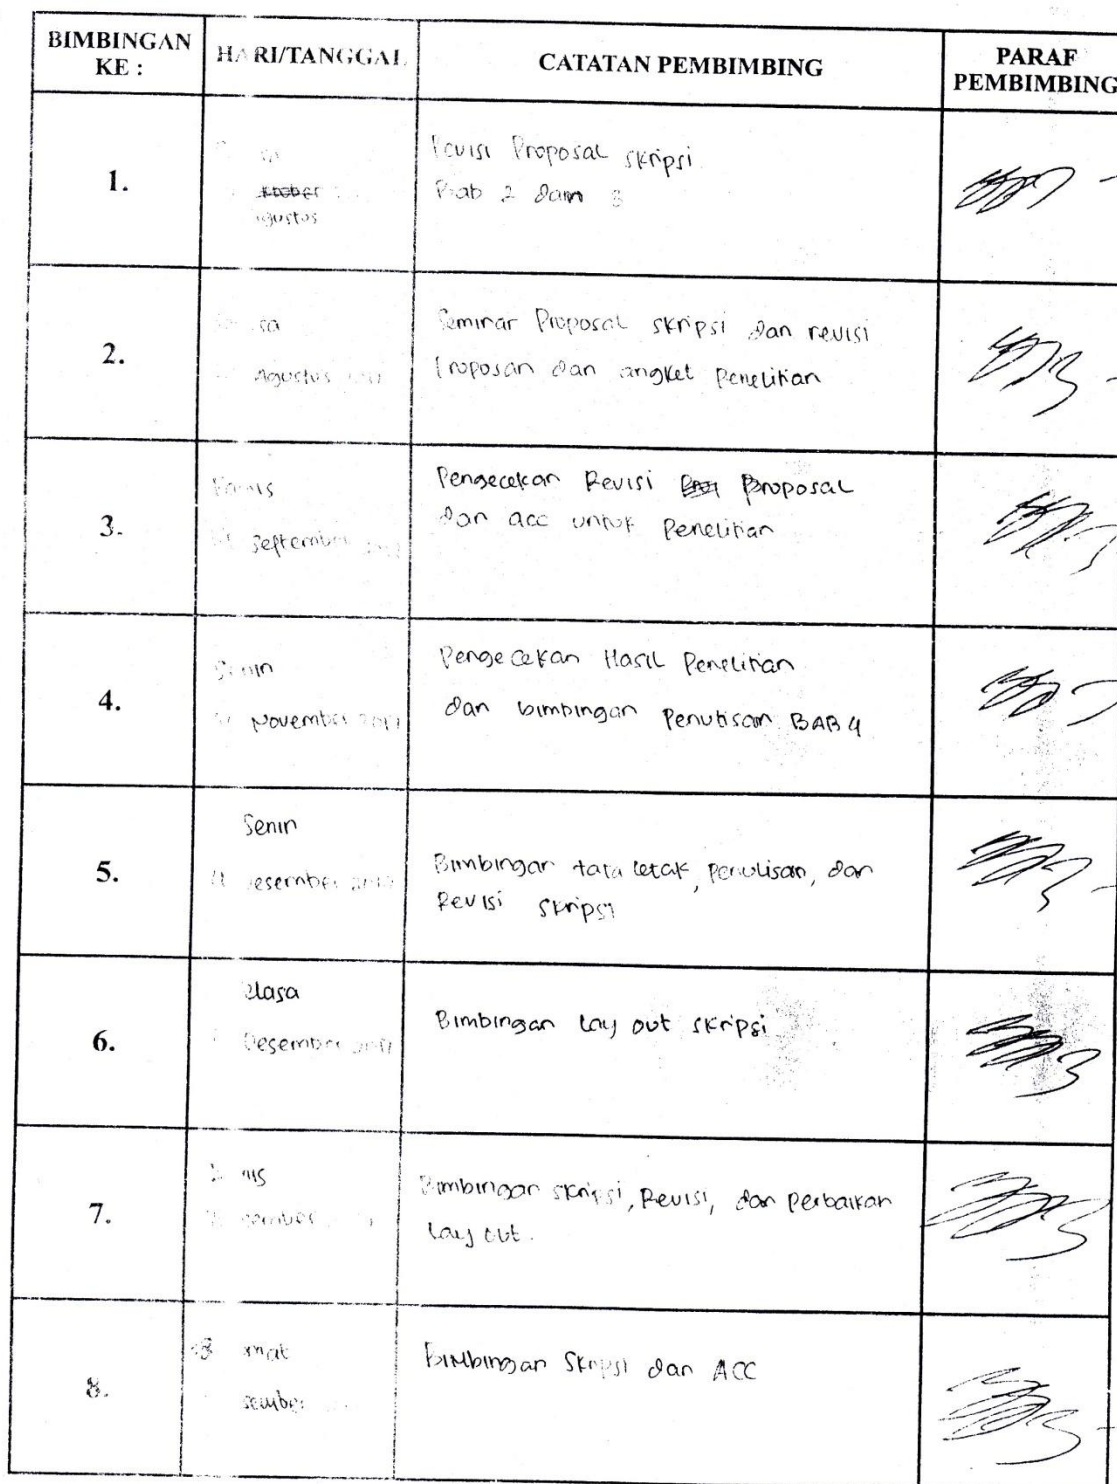 BIMBINGAN
KE :
HARI/TANGGAL
CATATAN PEMBIMBING
PARAF
PEMBIMBING
1.
Revisi Proposal skripsi
Bab 2 dan 3
2.
Agustus
Seminar Proposal skripsi dan revisi
Proposan dan angket Penelitian
3.
September
Pengecekan Revisi Proposal
dan acc untuk Penelitian
4.
Senin
November 2017
Pengecekan Hasil Penelitian
dan bimbingan Penulisan BAB 4
5.
Senin
Desember
Bimbingan tata letak, penulisan, dan
Revisi skripsi
6.
Selasa
Desember 2017
Bimbingan lay out skripsi
7.
Bimbingan skripsi, Revisi, dan perbaikan
lay out.
8.
Bimbingan Skripsi dan ACC